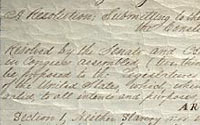 A Resolution; Submitting to the
the Constit
Resolved by the Senate and
in Congress assembled, (two thir
be proposed to the Legislatures
of the United States, which, when
valid, to all intents and purposes
AR
Section 1. Neither Slavery nor